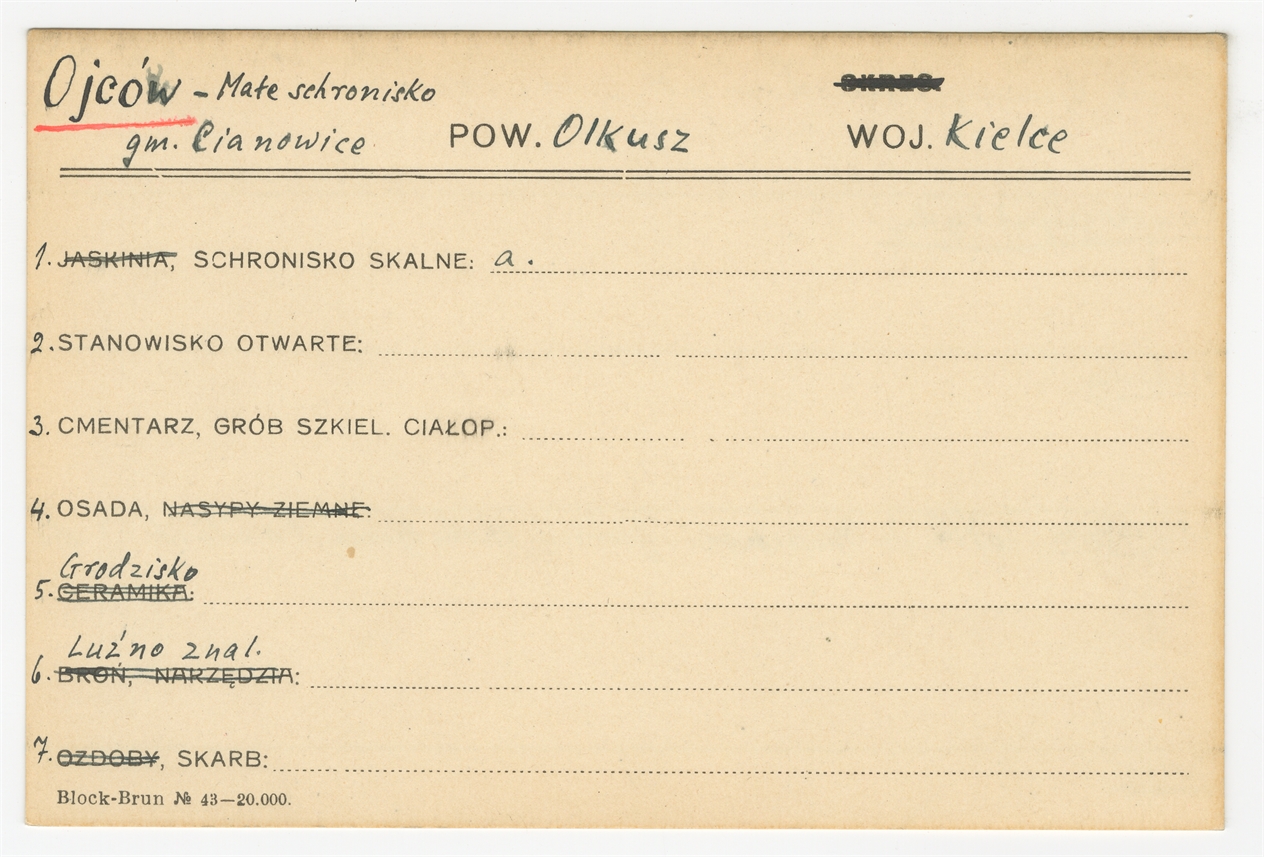 Ojców - Małe schronisko OKRES:
gm. Cianowice POW. Olkusz WOJ. Kielce
1. JASKINIA, SCHRONISKO SKALNE: a.
2. STANOWISKO OTWARTE:
3. CMENTARZ, GRÓB SZKIEL. CIAŁOP.:
4. OSADA, NASYPY ZIEMNE:
Grodzisko
5. CERAMIKA:
Luźno znal.
6. BROŃ, NARZĘDZIA:
7. OZDOBY, SKARB:
Block-Brun № 43—20.000.